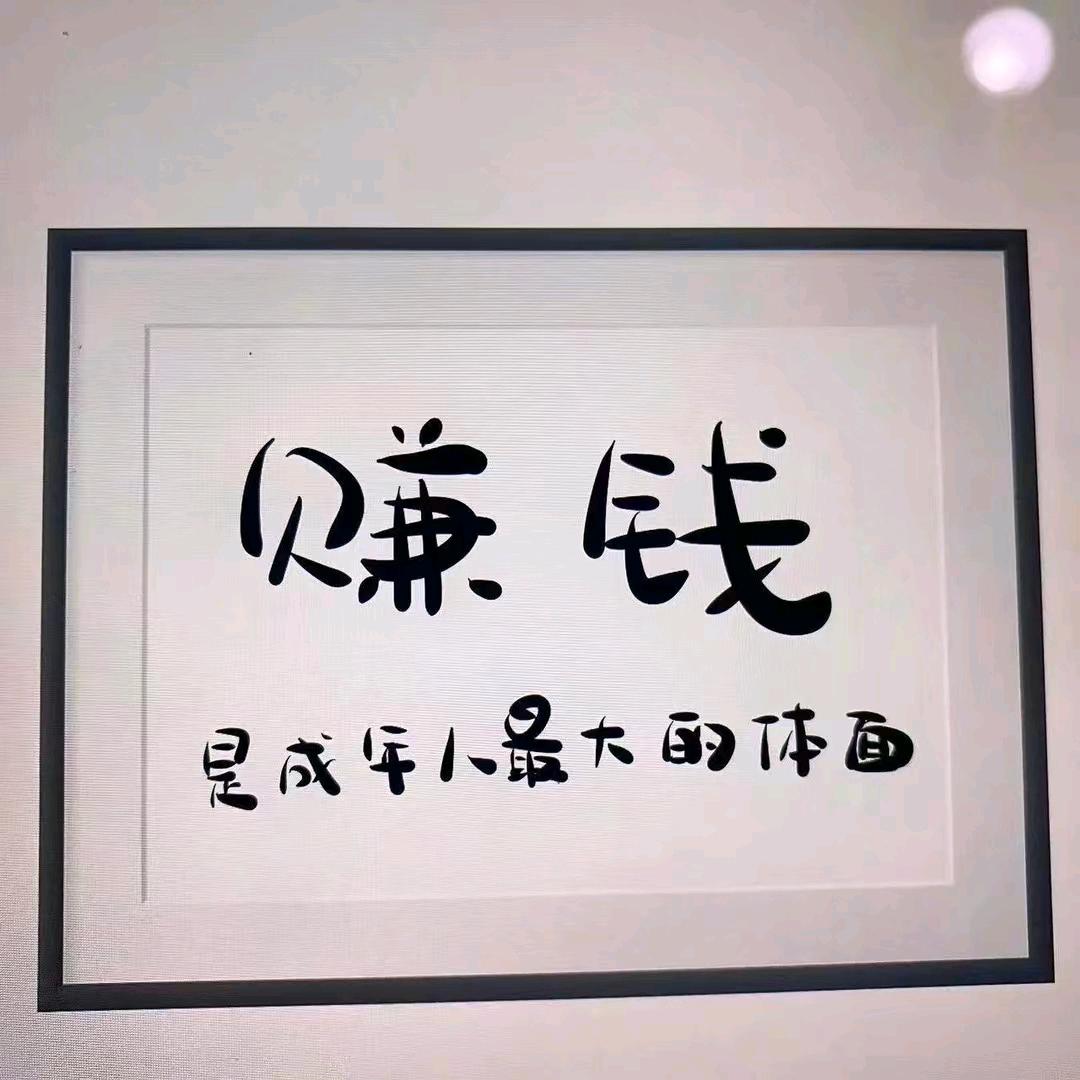 赚钱
是成年人最大的体面